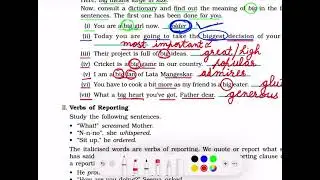 Here, big means large in size.
Now, consult a dictionary and find out the meaning of big in the
sentences. The first one has been done for you.
(i) You are a big girl now. older
(ii) Today you are going to take the biggest decision of your
most important
(iii) Their project is full of big ideas. great/high
(iv) Cricket is a big game in our country. popular
(v) I am a big fan of Lata Mangeskar. admirer
(vi) You have to cook a bit more as my friend is a big eater. glu
(vii) What a big heart you've got, Father dear. generous
II. Verbs of Reporting
Study the following sentences.
• "What!" screamed Mother.
• "N-n-no". she whispered.
• "Sit up." he ordered.
The italicised words are verbs of reporting. We quote or report what s
has said
porting clause
a reporting
• He prin